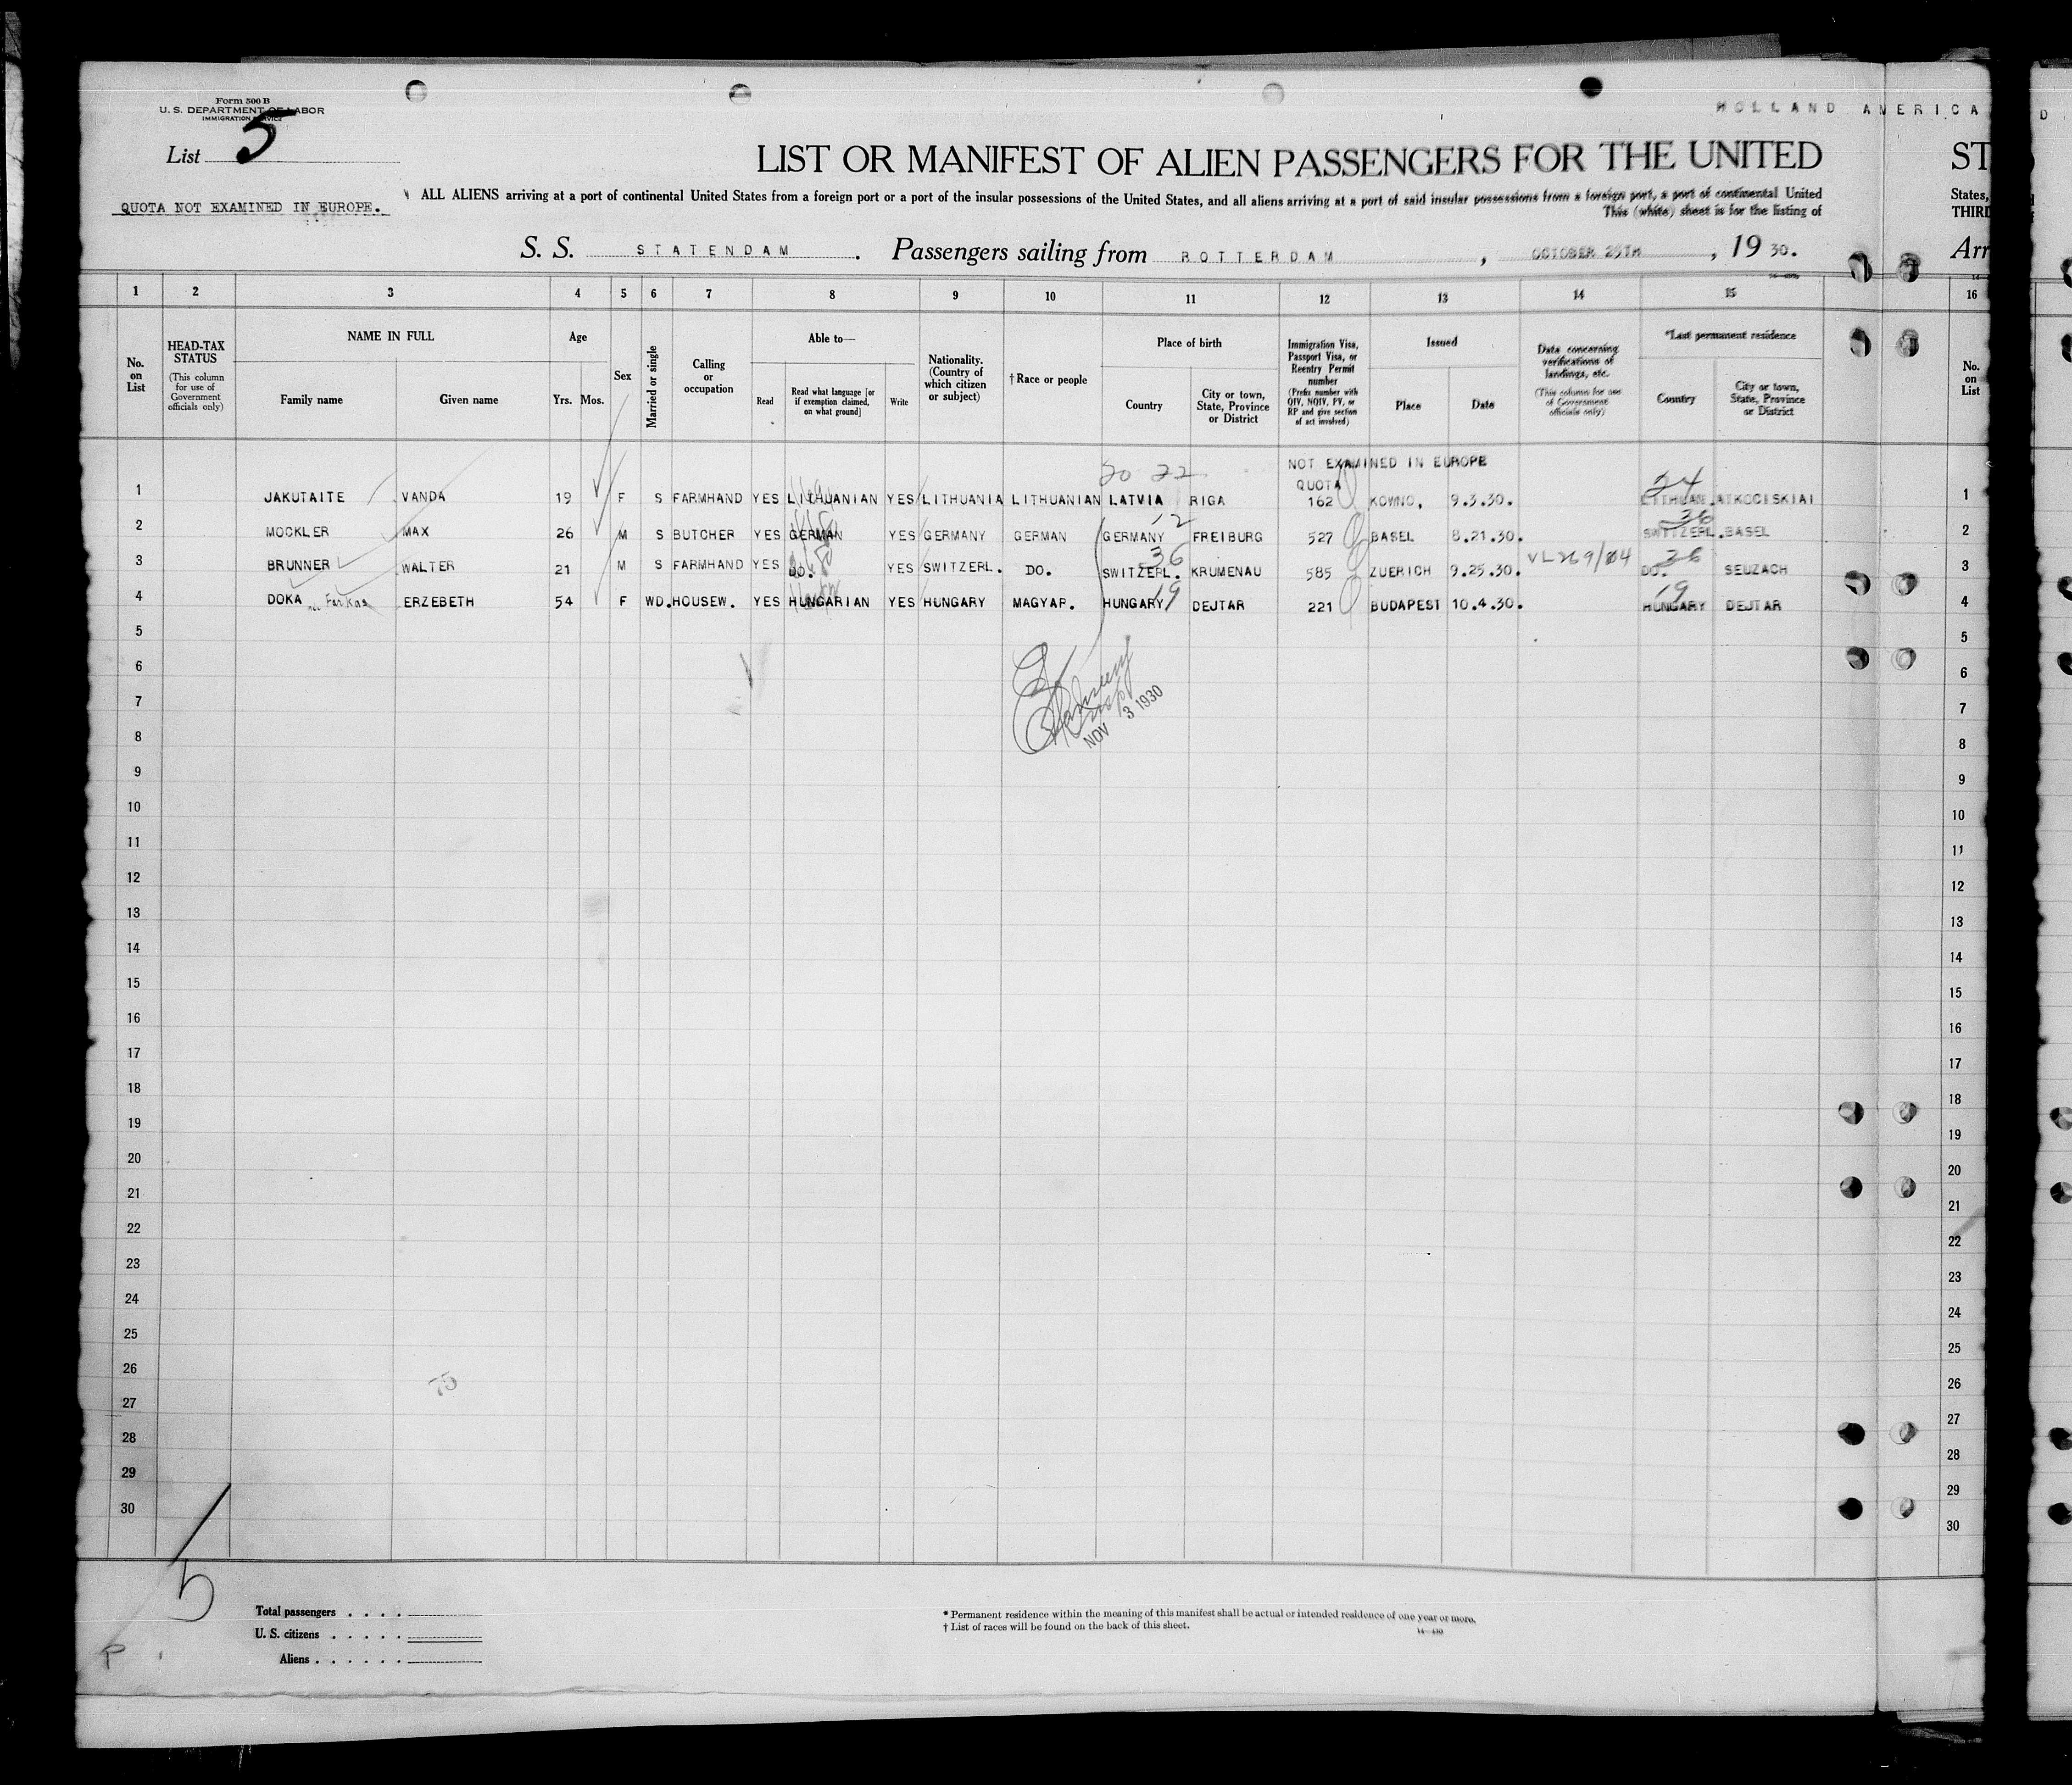 Form 500 B
U. S. DEPARTMENT OF LABOR
IMMIGRATION SERVICE
HOLLAND AMERICA
List 5
LIST OR MANIFEST OF ALIEN PASSENGERS FOR THE UNITED ST
ALL ALIENS arriving at a port of continental United States from a foreign port or a port of the insular possessions of the United States, and all aliens arriving at a port of said insular possessions from a foreign port, a port of continental United States,
QUOTA NOT EXAMINED IN EUROPE.
This (white) sheet is for the listing of THIRD
S. S. STATENDAM. Passengers sailing from ROTTERDAM, OCTOBER 25TH, 19 30. Arr
1 2 3 4 5 6 7 8 9 10 11 12 13 14 15 16
No. on List
HEAD-TAX STATUS (This column for use of Government officials only)
NAME IN FULL
Family name Given name
Age
Yrs. Mos.
Sex
Married or single
Calling or occupation
Able to—
Read
Read what language [or if exemption claimed, on what ground]
Write
Nationality. (Country of which citizen or subject)
† Race or people
Place of birth
Country
City or town, State, Province or District
Immigration Visa, Passport Visa, or Reentry Permit number (Prefix number with QIV, NQIV, PV, or RP and give section of act involved)
Issued
Place Date
Data concerning verifications of landings, etc. (This column for use of Government officials only)
*Last permanent residence
Country
City or town, State, Province or District
No. on List
NOT EXAMINED IN EUROPE
20 22
QUOTA
24
1 JAKUTAITE VANDA 19 F S FARMHAND YES LITHUANIAN YES LITHUANIA LITHUANIAN LATVIA RIGA 162 KOWNO, 9.3.30. LITHUAN. ATKOCISKIAI 1
12 36
2 MOCKLER MAX 26 M S BUTCHER YES GERMAN YES GERMANY GERMAN GERMANY FREIBURG 527 BASEL 8.21.30. SWITZERL. BASEL 2
36 VL269/104 36
3 BRUNNER WALTER 21 M S FARMHAND YES DO. YES SWITZERL. DO. SWITZERL. KRUMENAU 585 ZUERICH 9.25.30. DO. SEUZACH 3
19 19
4 DOKA nee Farkas ERZEBETH 54 F WD. HOUSEW. YES HUNGARIAN YES HUNGARY MAGYAR. HUNGARY DEJTAR 221 BUDAPEST 10.4.30. HUNGARY DEJTAR 4
5 5
6 6
7 7
NOV 3 1930
8 8
9 9
10 10
11 11
12 12
13 13
14 14
15 15
16 16
17 17
18 18
19 19
20 20
21 21
22 22
23 23
24 24
25 25
26 26
75
27 27
28 28
29 29
30 30
5
Total passengers
U. S. citizens
Aliens
P
* Permanent residence within the meaning of this manifest shall be actual or intended residence of one year or more.
† List of races will be found on the back of this sheet.